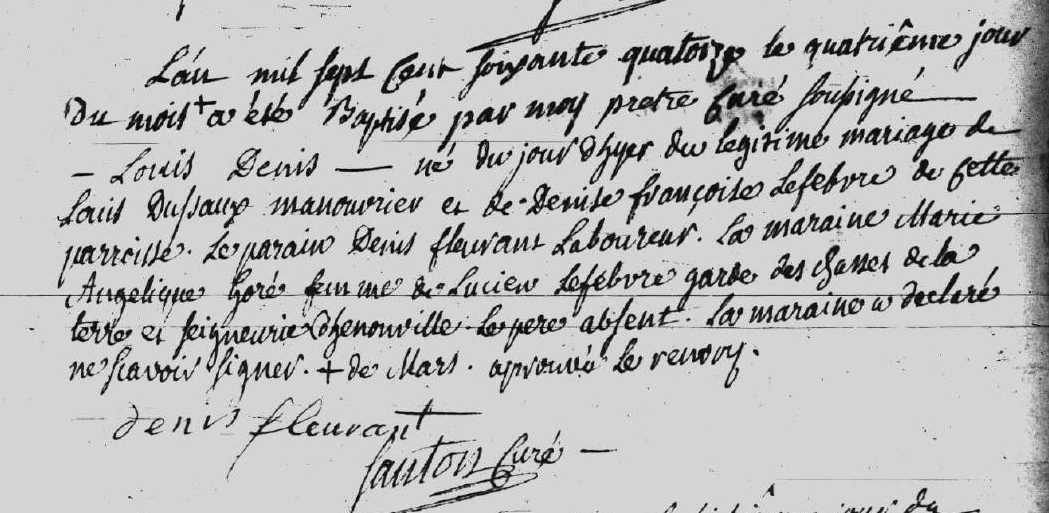 L'an mil sept Cent soixante quatorze le quatriême jour
Du mois + a été Baptisé par moy pretre Curé soussigné
- Louis Denis - né du jour d'hyer du legitime mariage de
Louis Dussaux manouvrier et de Denise françoise Lefebvre de Cette
parroisse. Le parain Denis fleurant Laboureur. La maraine Marie
Angelique horé femme de Lucien Lefebvre garde des chasses de la
terre et seigneurie d'henouville. Le pere absent. La maraine a declaré
ne scavoir signer. + de Mars. aprouvé le renvoy.
denis fleurant
Santon Curé